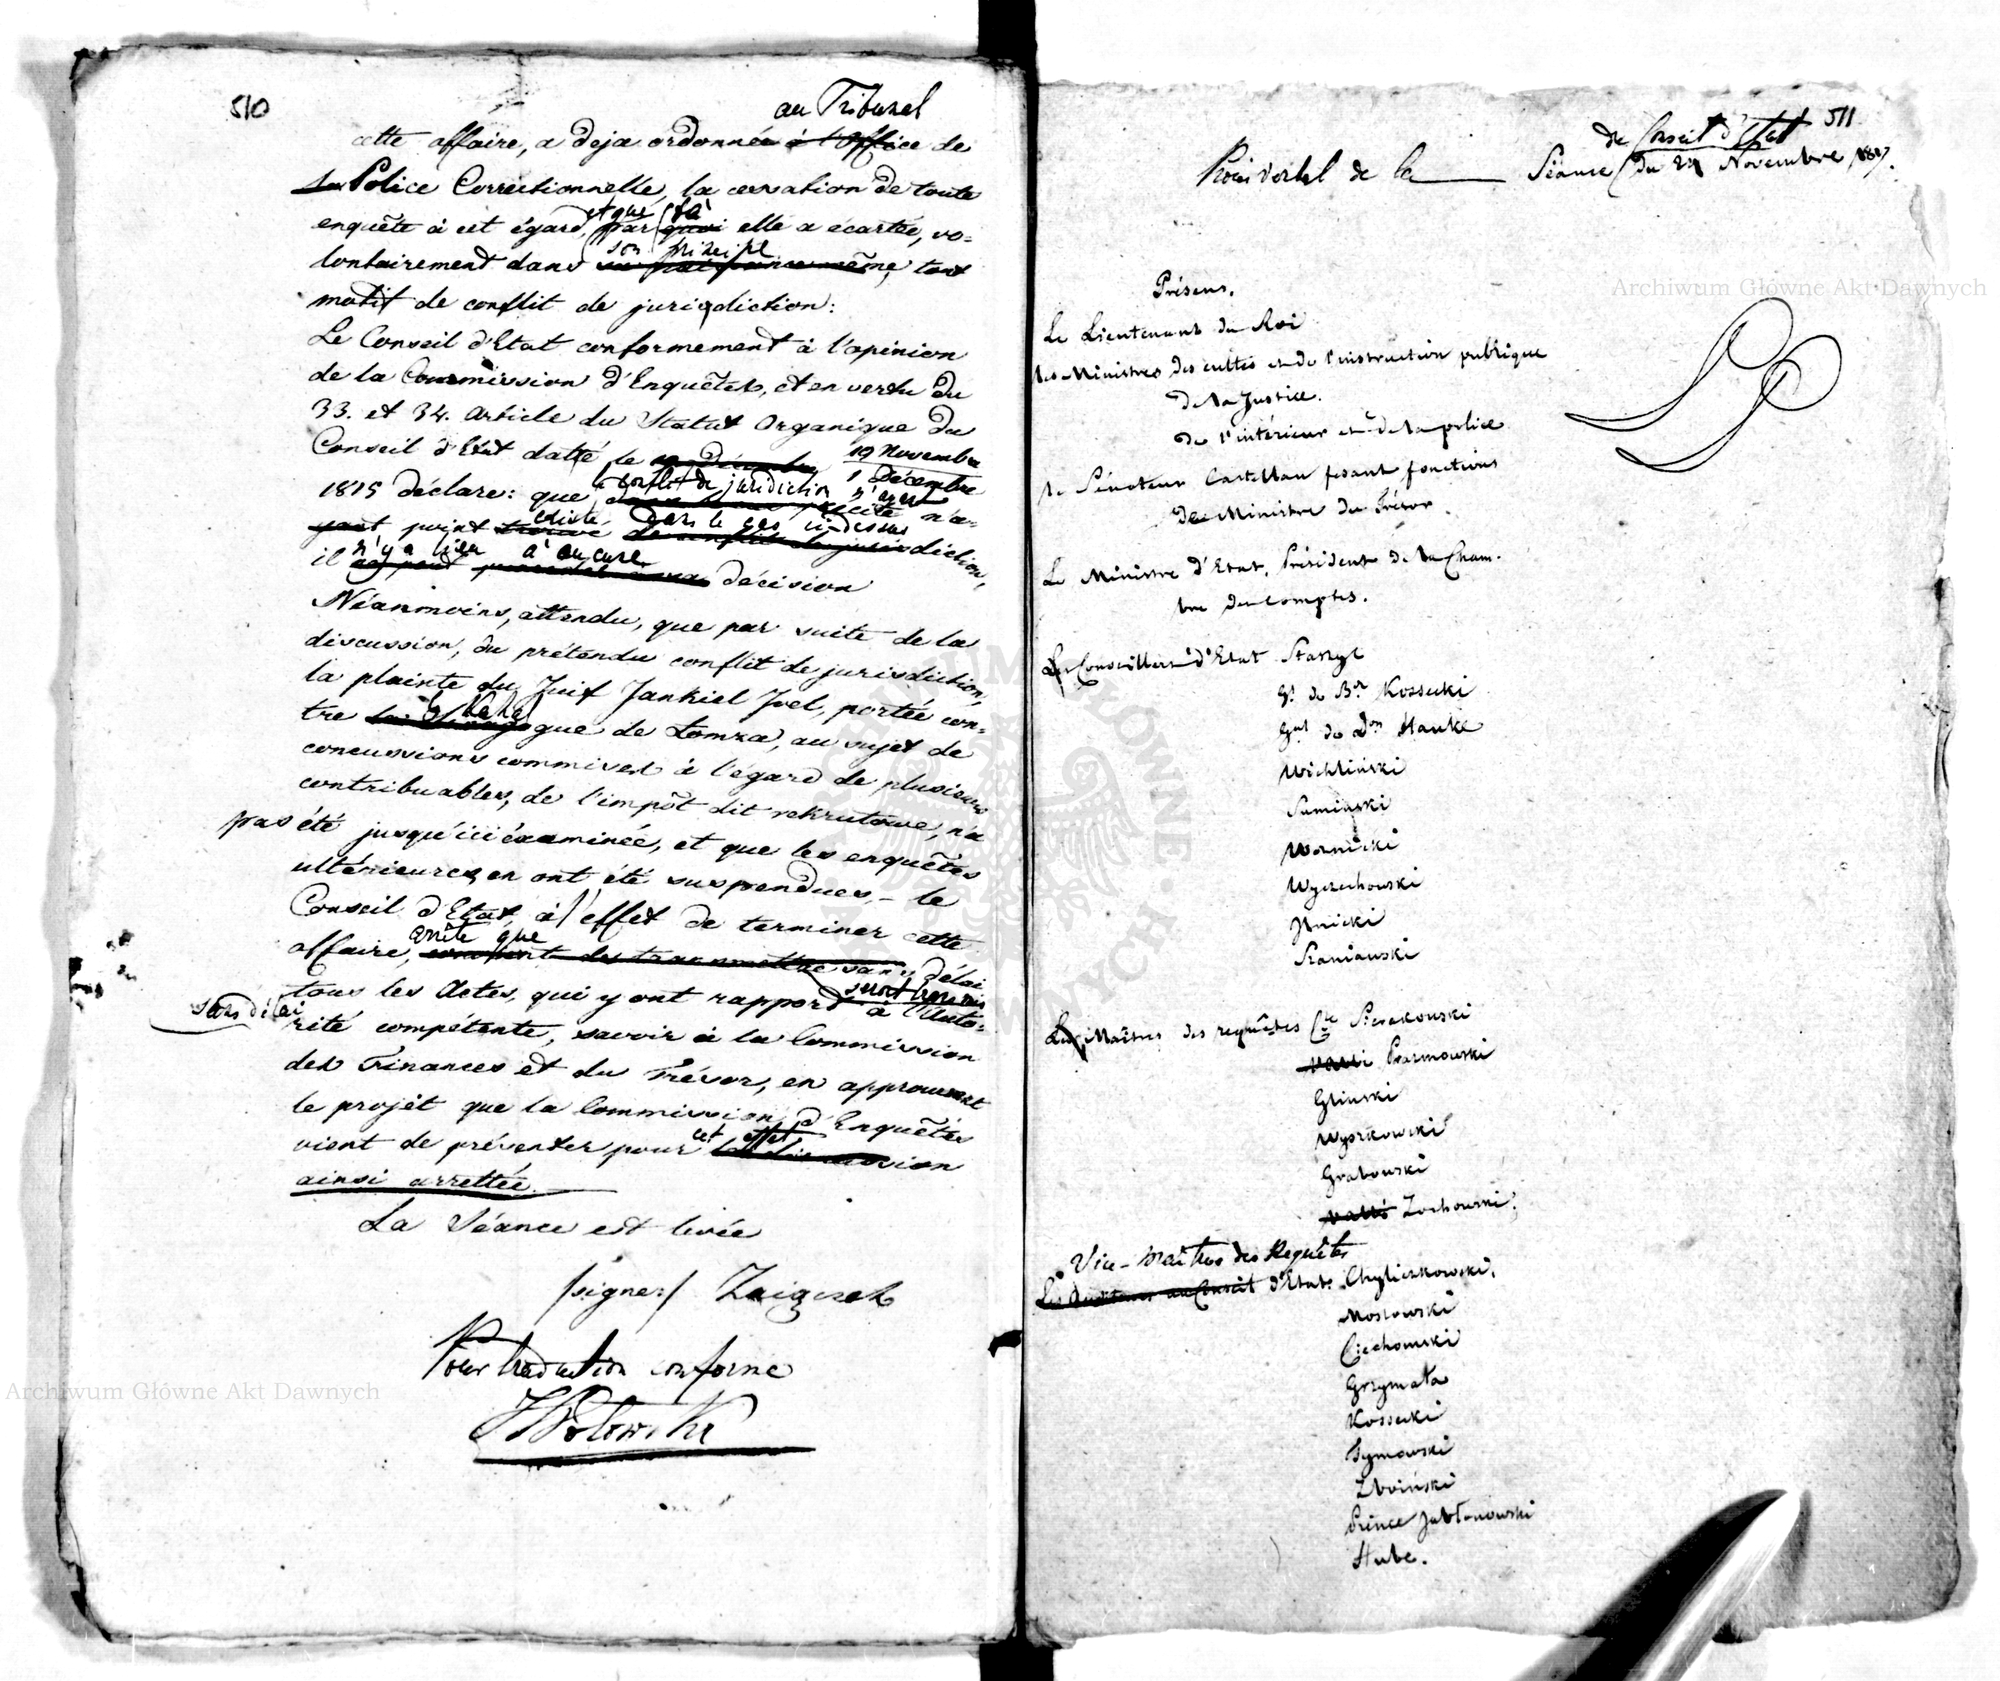 510
au Tribunal
cette affaire, a deja ordonnée à l'Office de
la Police Correctionnelle, la cessation de toute
et que là
enquête à cet égard, par quoi elle a écartée, vo-
son principe
lontairement dans sa naissance même, tout
motif de conflit de jurisdiction:
Le Conseil d'Etat conformement à l'opinion
de la Commission d'Enquêtes, et en vertu du
33. et 34. article du Statut Organique du
19 Novembre
Conseil d'Etat datté le Décembre
1 Décembre
le conflit de juridiction n'ayant
1815 déclare: que précité n'a-
existé dans le cas ci-dessus
yant point trouvé de conflit de jurisdiction,
n'y a lieu à aucune
il ne peut décision
Néanmoins, attendu, que par suite de la
discussion, du prétendu conflit de jurisdiction,
la plainte du Juif Jankiel Joel, portée con-
le Kahal
tre la Sinagogue de Lomza, au sujet de
concussions commises à l'égard de plusieurs
contribuables, de l'impôt dit rekrutowe, n'a
pas été jusqu'ici éxaminée, et que les enquêtes
ultérieures en ont été suspendues, – le
Conseil d'Etat, à l'effet de terminer cette
arrête que
affaire, de transmettre sans délai
seront transmis
tous les Actes, qui y ont rapport à l'Auto-
sans délai
rité compétente, savoir à la Commission
des Finances et du Trésor, en approuvant
le projét que la Commission d'Enquêtes
cet effet
vient de présenter pour
ainsi arrettée.
La Séance est levée
/signer/ Zaiączek
Pour traduction conforme
511
de Conseil d'Etat
Procès verbal de la Séance du 24 Novembre 1817.
Présens.
Le Lieutenant du Roi
Les Ministres des cultes et de l'instruction publique
de la Justice.
de l'intérieur et de la police
le Sénateur Castellan fesant fonctions
de Ministre du Trésor.
Le Ministre d'Etat, Président de la Cham-
bre des Comptes.
Les Conseillers d'Etat Staszyc
Gl. de Bde Kossecki
Gral de Don Hauke
Wichliński
Sumiński
Woźnicki
Wyczechowski
Szaniawski
Les Maîtres des requêtes Cte Sierakowski
Prazmowski
Gliński
Wyszkowski
Grabowski
Zochowski.
Vice-Maîtres des Requêtes
Les Auditeurs au Conseil d'Etat Chyliczkowski.
Mostowski
Ciechomski
Grzymała
Kossecki
Tymowski
Zboiński
Prince Jabłonowski
Hube.
Archiwum Główne Akt Dawnych
Archiwum Główne Akt Dawnych